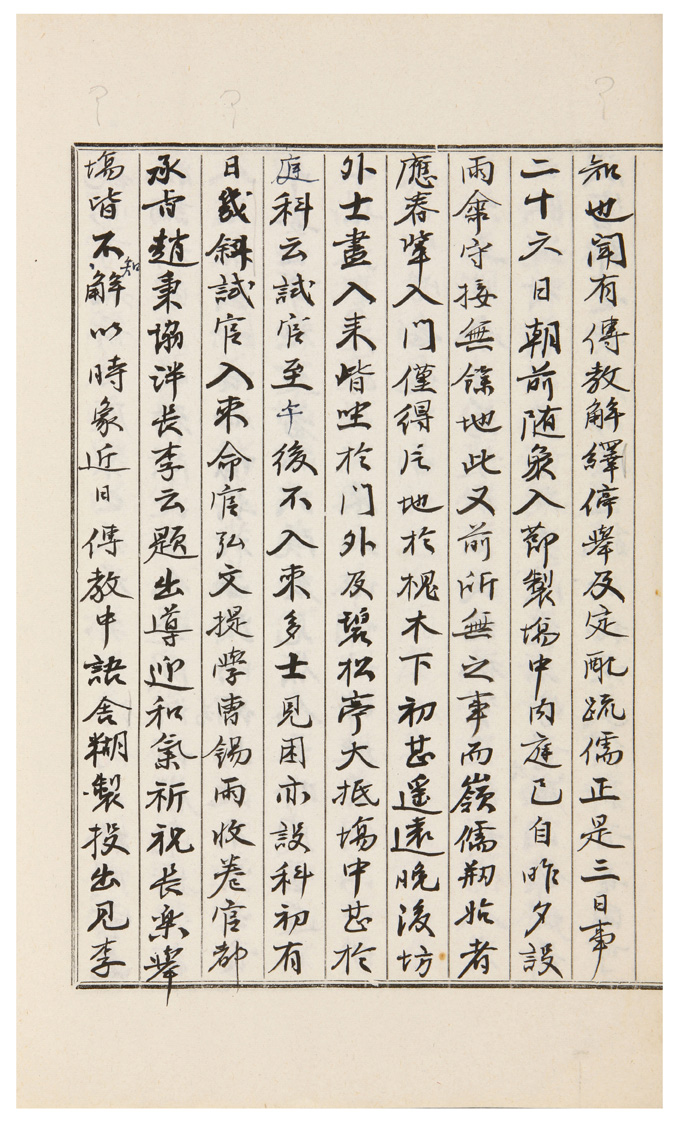 知也聞有傳教解繹停擧及定配疏儒正是三日事
二十六日朝前随衆入節製場中內庭已自昨夕設
雨傘守接無餘地此又前所無之事而嶺儒刱始者
應春輩入門僅得片地於槐木下初甚遥遠晚後坊
外士盡入来皆坐於門外及碧松亭大抵場中甚於
庭科云試官至午後不入來多士見困亦設科初有
日幾斜試官入來命官弘文提學曺錫雨收卷官都
承旨趙秉協泮長李云題出導迎和氣祈祝長樂擧
塲皆不知解以時象近日傳教中語含糊製投出見李